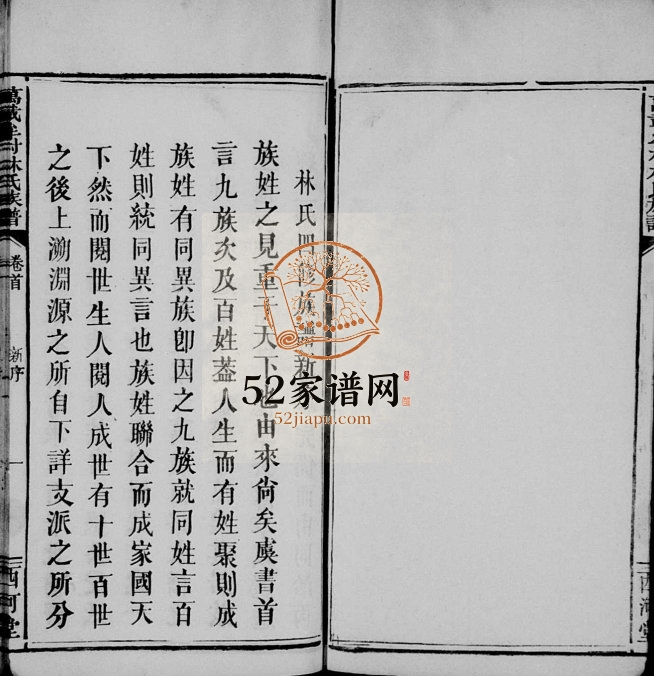 林氏四修族譜新
族姓之見重于天下也由來尙矣虞書首
言九族次及百姓葢人生而有姓聚則成
族姓有同異族卽因之九族就同姓言百
姓則統同異言也族姓聯合而成家國天
下然而閱世生人閱人成世有十世百世
之後上溯淵源之所自下詳支派之所分
萬載 村林氏族譜
卷首
新序
一
西河堂
52家谱网
52jiapu.com
西河堂